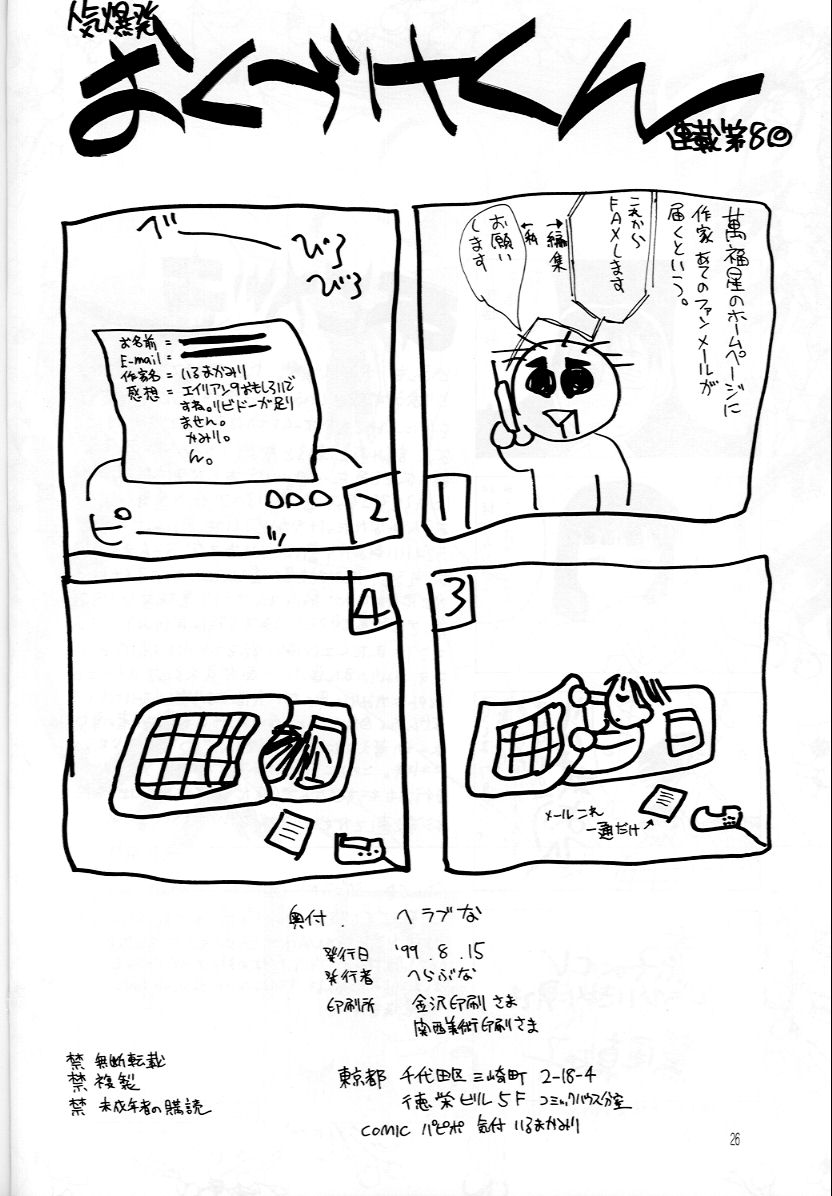 人気爆発
おくづけくん
連載第8回
萬福星のホームページに
作家あてのファンメールが
届くという。
これから
FAXします
↑編集
↓私
お願い
します
1
ガ――
びろ
びろ
お名前 =
E-mail =
作家名 = いるまかみり
感想 = エイリアン9おもしろいで
すね。リビドーが足り
ません。
かみり。
ん。
ピ――ッ
2
3
メールこれ
一通だけ
4
奥付. ヘラブな
発行日 '99.8.15
発行者 へらぶな
印刷所 金沢印刷さま
関西美術印刷さま
禁 無断転載
禁 複製
禁 未成年者の購読
東京都 千代田区三崎町 2-18-4
徳栄ビル5F コミックハウス分室
COMIC パピポ 気付 いるまかみり
26